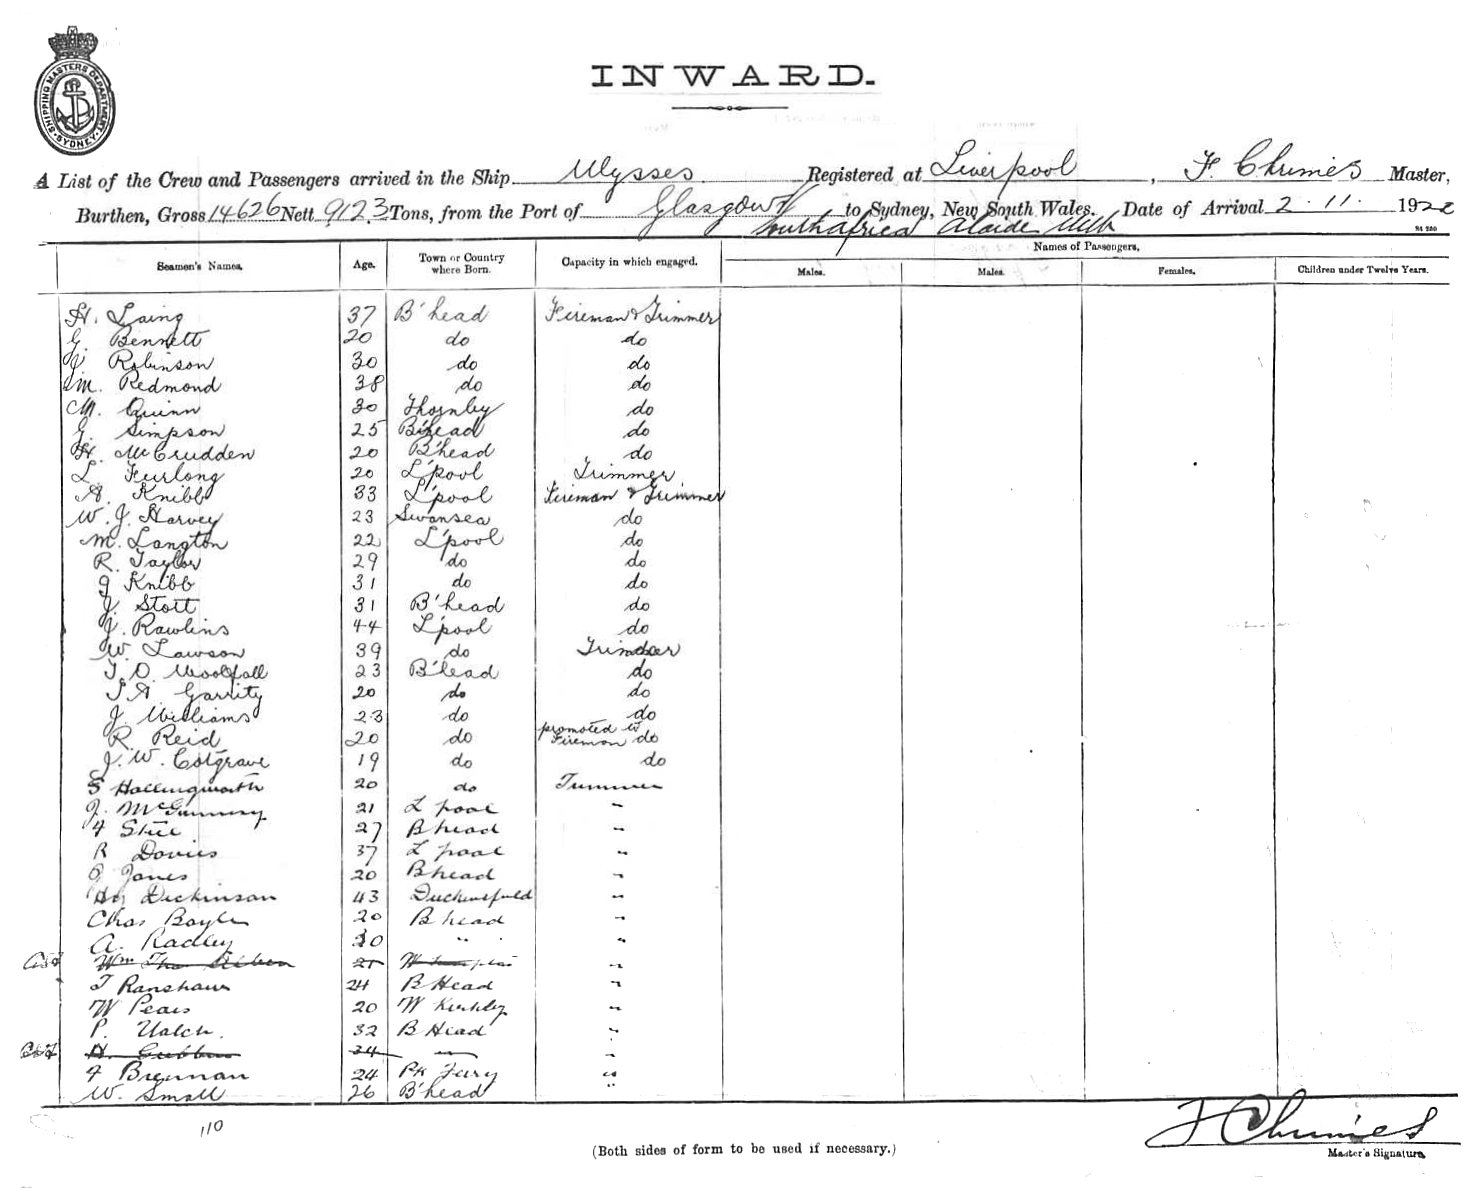 SHIPPING MASTERS DEPARTMENT
SYDNEY
INWARD.
A List of the Crew and Passengers arrived in the Ship Ulysses Registered at Liverpool, F. Chrimes Master,
Burthen, Gross 14626 Nett 9123 Tons, from the Port of Glasgow to Sydney, New South Wales. Date of Arrival 2.11. 1922
South Africa
Seamen's Names. Age. Town or Country where Born. Capacity in which engaged. Names of Passengers.
Males. Males. Females. Children under Twelve Years.
H. Laing 37 B'head Fireman & Trimmer
G. Bennett 20 do do
J Robinson 30 do do
M. Redmond 38 do do
M. Quinn 30 Thornley do
G. Simpson 25 B'head do
H. McCrudden 20 B'head do
L. Furlong 20 L'pool Trimmer
A. Knibb 33 L'pool Fireman & Trimmer
W. J. Harvey 23 Swansea do
M. Langton 22 L'pool do
R. Taylor 29 do do
J Knibb 31 do do
J. Stott 31 B'head do
J. Rawlins 44 L'pool do
W. Lawson 39 do Trimmer
T. O. Woolfall 23 B'head do
T A Garrity 20 do do
J. Williams 23 do do
R. Reid 20 do promoted to Fireman do
J. W. Colgrave 19 do do
S Hollingworth 20 do Trimmer
J. McGummery 21 L pool "
F Steel 27 B head "
R Davies 37 L pool "
O Jones 20 B head "
Hy Dickinson 43 Duckinfield "
Chas Boyle 20 B head "
A. Radley 30 " "
Wm Thos "
T Ranshaw 24 B Head "
W Pears 20 W Kirkby "
P. Walch. 32 B Head "
H. 34 " "
F Brennan 24 Pk Fury "
W. Small 26 B'head "
110
F Chrimes
(Both sides of form to be used if necessary.)
Master's Signature.